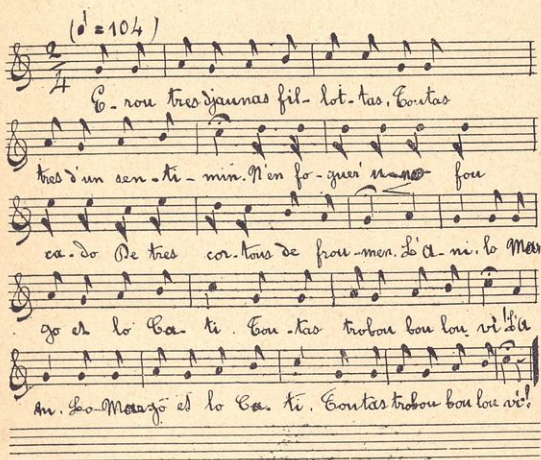 (♩ = 104)
2/4
E-rou tres djaunas fil-lot-tas, Toutas
tres d'un sen-ti-min. N'en fo-guer' u-no fou
ca-do De tres cor-tous de frou-men. L'A-ni. lo Mar
go et lo Ca-ti. Tou-tas trobou bou lou vi! L'A
ni. Lo Margo et lo Ca-ti. Toutas trobou bou lou vi!